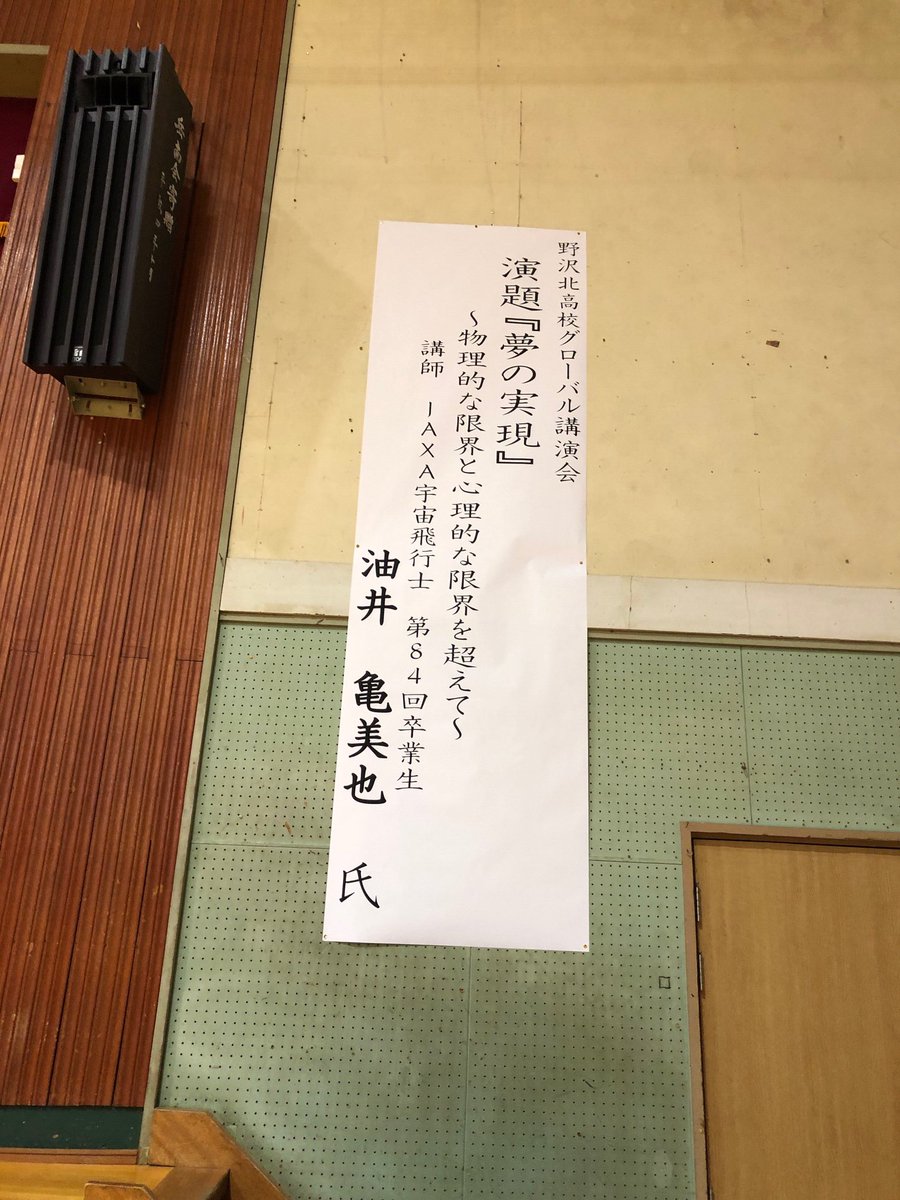 野沢北高校グローバル講演会
演題『夢の実現』
～物理的な限界と心理的な限界を超えて～
講師　JAXA宇宙飛行士　第84回卒業生
油井　亀美也　氏